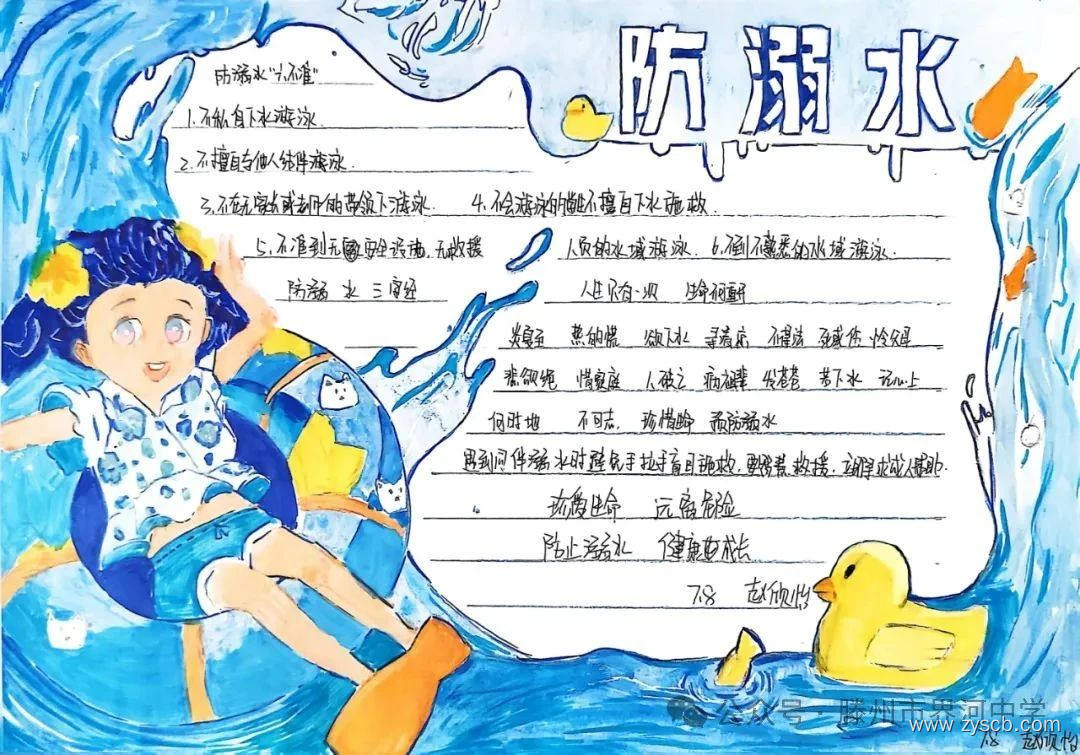 防溺水
防溺水"六不准"
1.不私自下水游泳.
2.不擅自与他人结伴游泳.
3.不在无家长或老师的带领下游泳. 4.不会游泳的 不擅自下水施救.
5.不准到无 安全设施,无救援
人员的水域游泳. 6.不到不熟悉的水域游泳.
防溺 水 三字经
人生只有一次 生命何
炎夏至 热的慌 欲下水 寻 不得法 至 伤
惜家庭 人 苦下水 记心上
何时地 不可忘 珍惜 预防溺水
遇到同伴溺水时避免手拉手盲目施救. 救援, 求成人
珍爱生命 远离危险
防止溺水 健康 成长
7.8 赵欣怡
公众号·滕州市界河中学
www.zyscb.com
7.8 赵欣怡